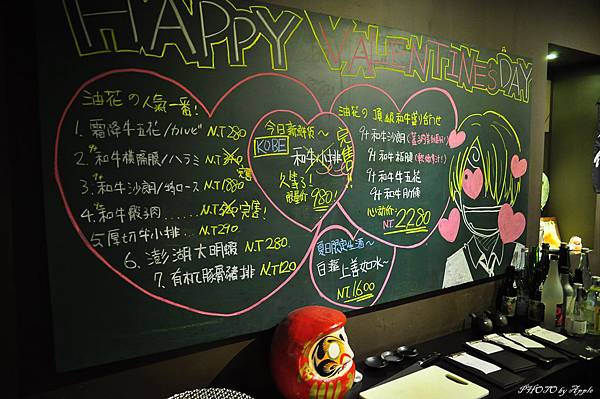 HAPPY VALENTINES DAY
油花の人氣一番!
1. 霜降牛五花/カルビ NT 280
2. 和牛橫膈膜/ハラミ NT
3. 和牛沙朗/ロース NT 880
4. 和牛骰子肉....... NT 完售!
5. 厚切牛小排... NT 290
6. 澎湖大明蝦 NT 280
7. 有机豚骨豬排 NT 120
今日新鮮貨~
KOBE 和牛小排
完售
久等了!
限量价 980!
油花の頂級和牛盛り合わせ
9+和牛沙朗
9+和牛板腱
9+和牛牛五花
9+和牛肋條
心動价: NT 2280
夏日限定生酒~
日本上善如水~
NT 1600
PHOTO by Apple